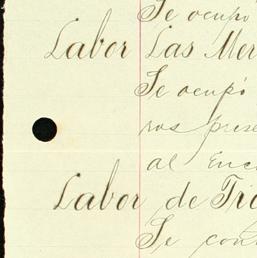 Se ocupó
Labor Las Mer
Se ocupó
ros prese
al Enc
Labor de Tra
Se cont